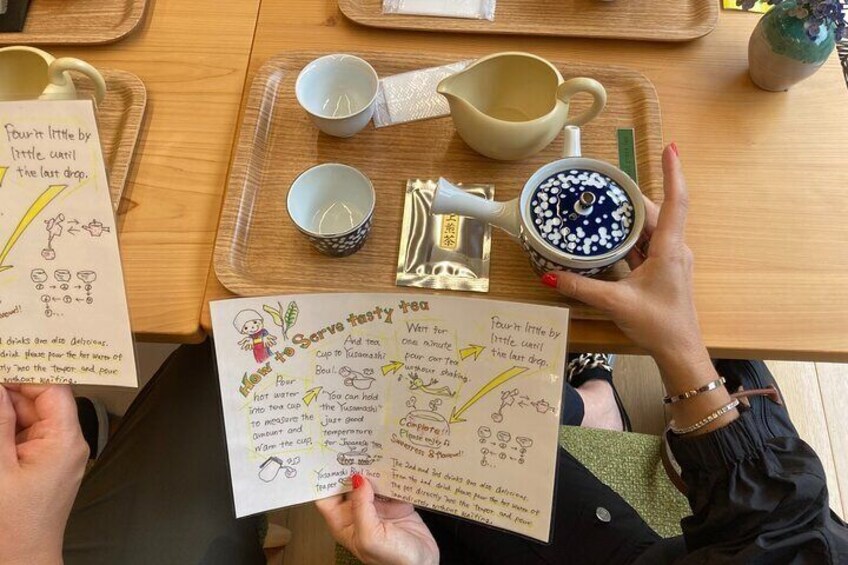 Pour it little by
little until
the last drop.
nd drinks are also delicious.
ard drink please pour the hot water of
immediately without waiting.
上煎茶
How to Serve tasty tea
Pour
hot water
into tea cup
to measure the
amount and
warm the cup.
And tea
cup to Yusamashi
Bowl.
You can hold
the Yusamashi
just good
temperature
for Japanese tea
Yusamashi Bowl into
teapot
Wait for
one minute
pour tea
without shaking.
Pour it little by
little until
the last drop.
Complete!!
Please enjoy
Sweetness & Flavour!
The 2nd and 3rd drinks are also delicious.
From the 2nd drink please pour the hot water of
the pot directly into the teapot and pour
immediately without waiting.